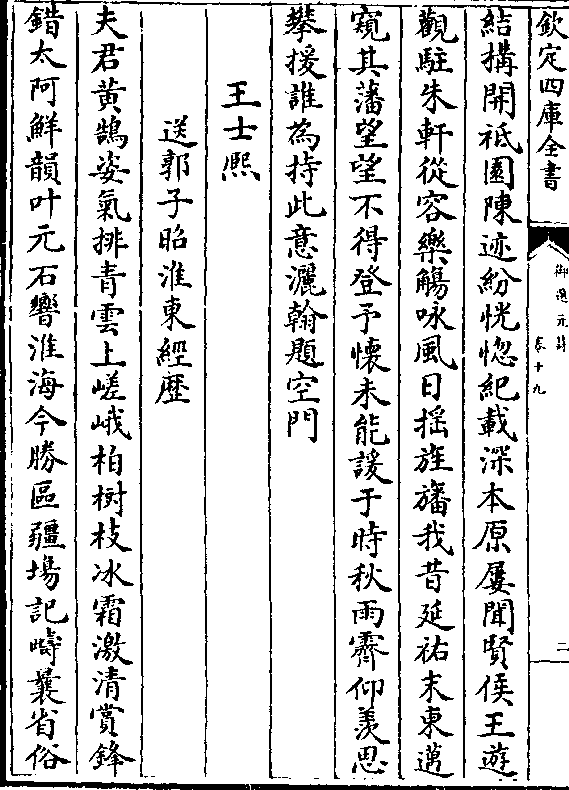 欽定四庫全書
御選元詩
卷十九
二
結搆開祗園陳迹紛恍惚紀載深本原屢聞賢侯王遊
觀駐朱軒從容樂觴咏風日揺旌旛我昔延祐末東邁
窺其藩望望不得登予懷未能諼于時秋雨霽仰羨思
攀援誰為持此意灑翰題空門
王士熈
送郭子昭淮東經歴
夫君黄鵠姿氣排青雲上嵯峨柏樹枝冰霜激清賞鋒
錯太阿鮮韻叶元石響淮海今勝區疆場記疇曩省俗